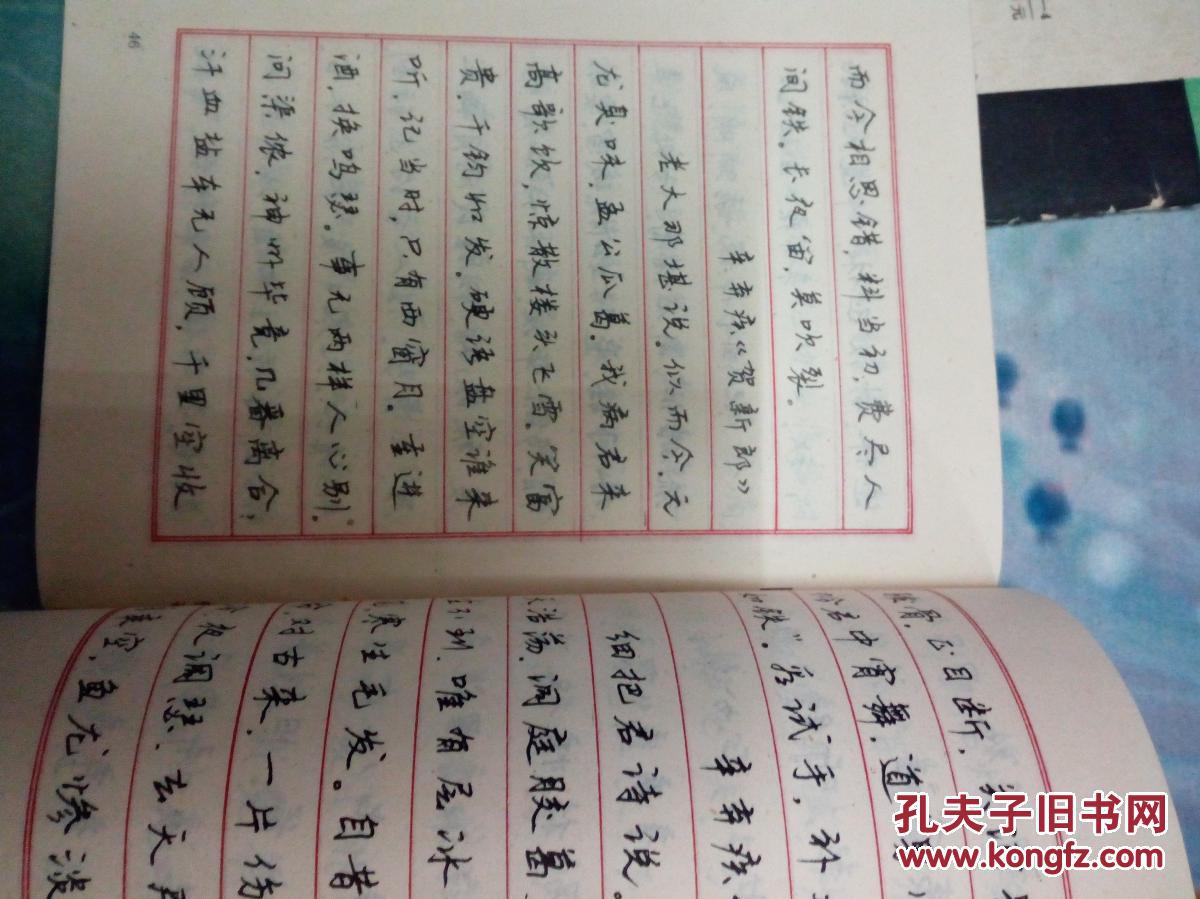 而今相思错，料当初，费尽人
间铁。长夜笛，莫吹裂。
辛弃疾《贺新郎》
老大那堪说。似而今、元
龙臭味，孟公瓜葛。我病君来
高歌饮，惊散楼头飞雪。笑富
贵，千钧如发。硬语盘空谁来
听，记当时，只有西窗月。重进
酒，换鸣瑟。事无两样人心别。
问渠侬，神州毕竟，几番离合，
汗血盐车无人顾，千里空收
46
骨。正目断，
君中宵舞，道
如铁。”看试手，补
辛弃疾
细把君诗说。
浩荡、洞庭胶葛
不到，唯有层冰
寒生毛发。自昔
对古来、一片伤
夜调瑟。去天
空，鱼龙惨淡
孔夫子旧书网
www.kongfz.com